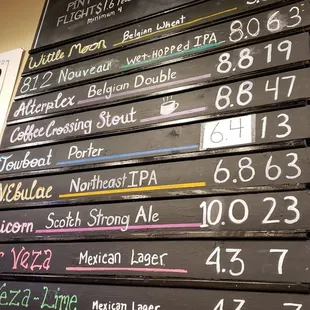 PINT
FLIGHTS $16
minimum 4
Wittle Moon Belgian Wheat 8.0 63
812 Nouveau Wet-Hopped IPA 8.8 19
Alterplex Belgian Double 8.8 47
Coffee Crossing Stout 6.4 13
Towboat Porter 6.8 63
Nebulae Northeast IPA 10.0 23
icorn Scotch Strong Ale 4.3 7
r Veza Mexican Lager 4.3 7
eza-Lime Mexican Lager